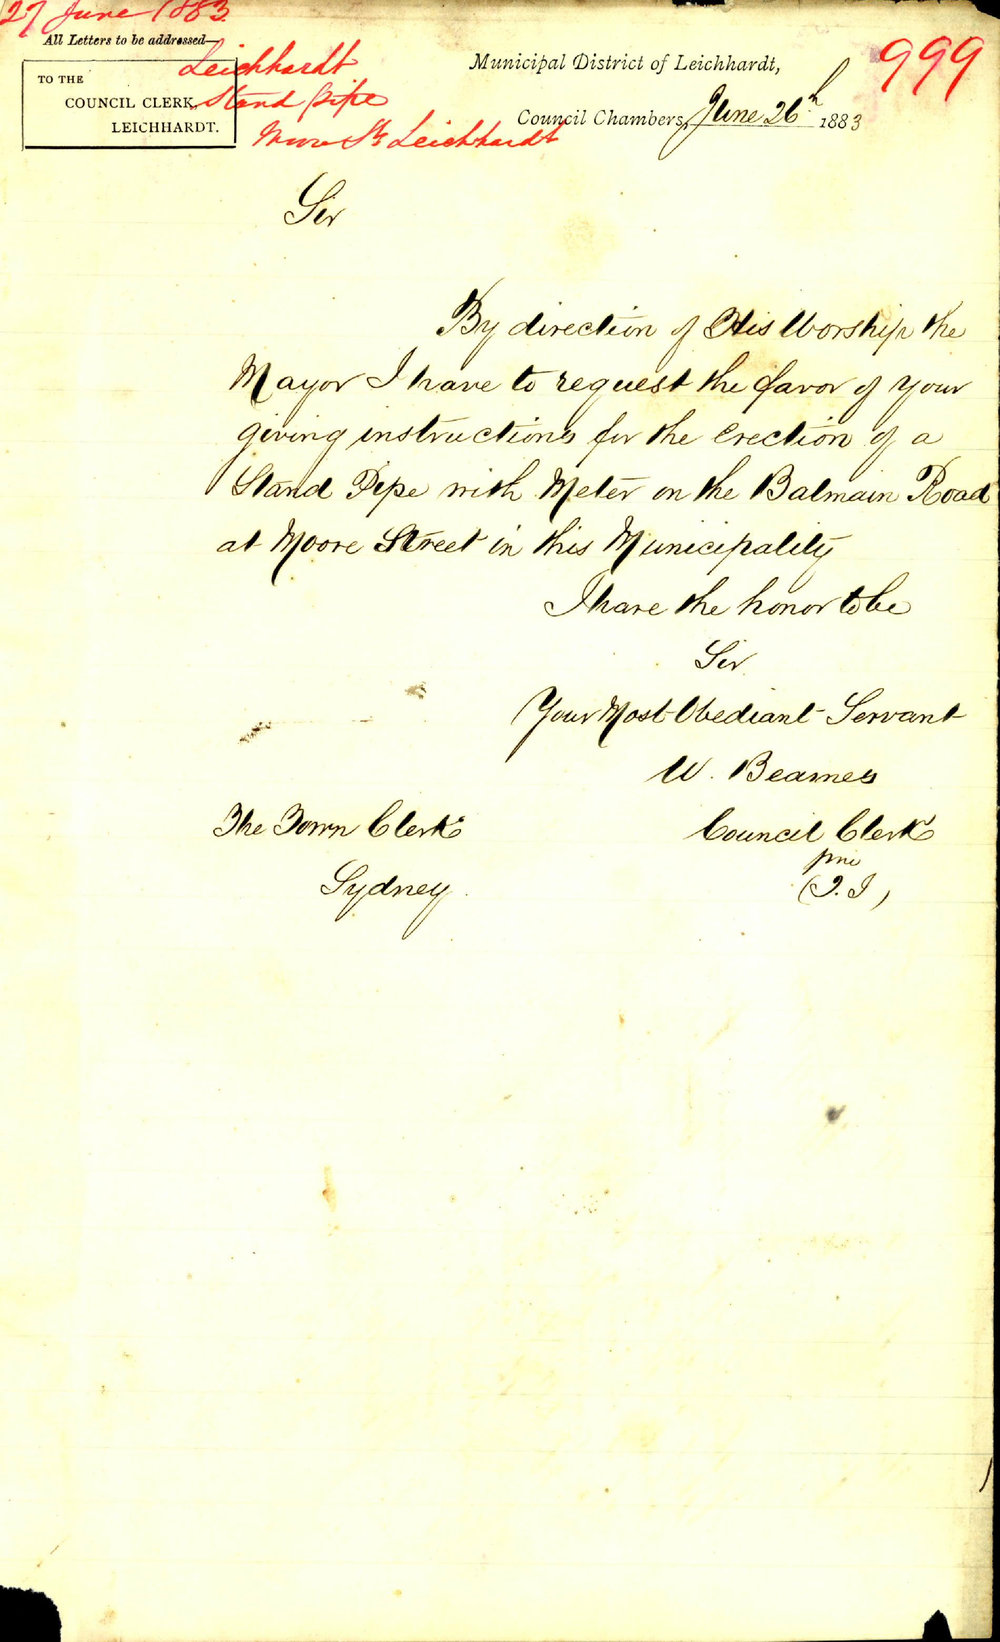 27 June 1883
All Letters to be addressed—
TO THE
COUNCIL CLERK,
LEICHHARDT.
Leichhardt
Stand pipe
Moore St Leichhardt
999
Municipal District of Leichhardt,
Council Chambers, June 26th 1883
Sir
By direction of His Worship the
Mayor I have to request the favor of your
giving instructions for the erection of a
Stand Pipe with Meter on the Balmain Road
at Moore Street in this Municipality
I have the honor to be
Sir
Your Most Obediant Servant
W. Beames
Council Clerk
The Town Clerk
Sydney.